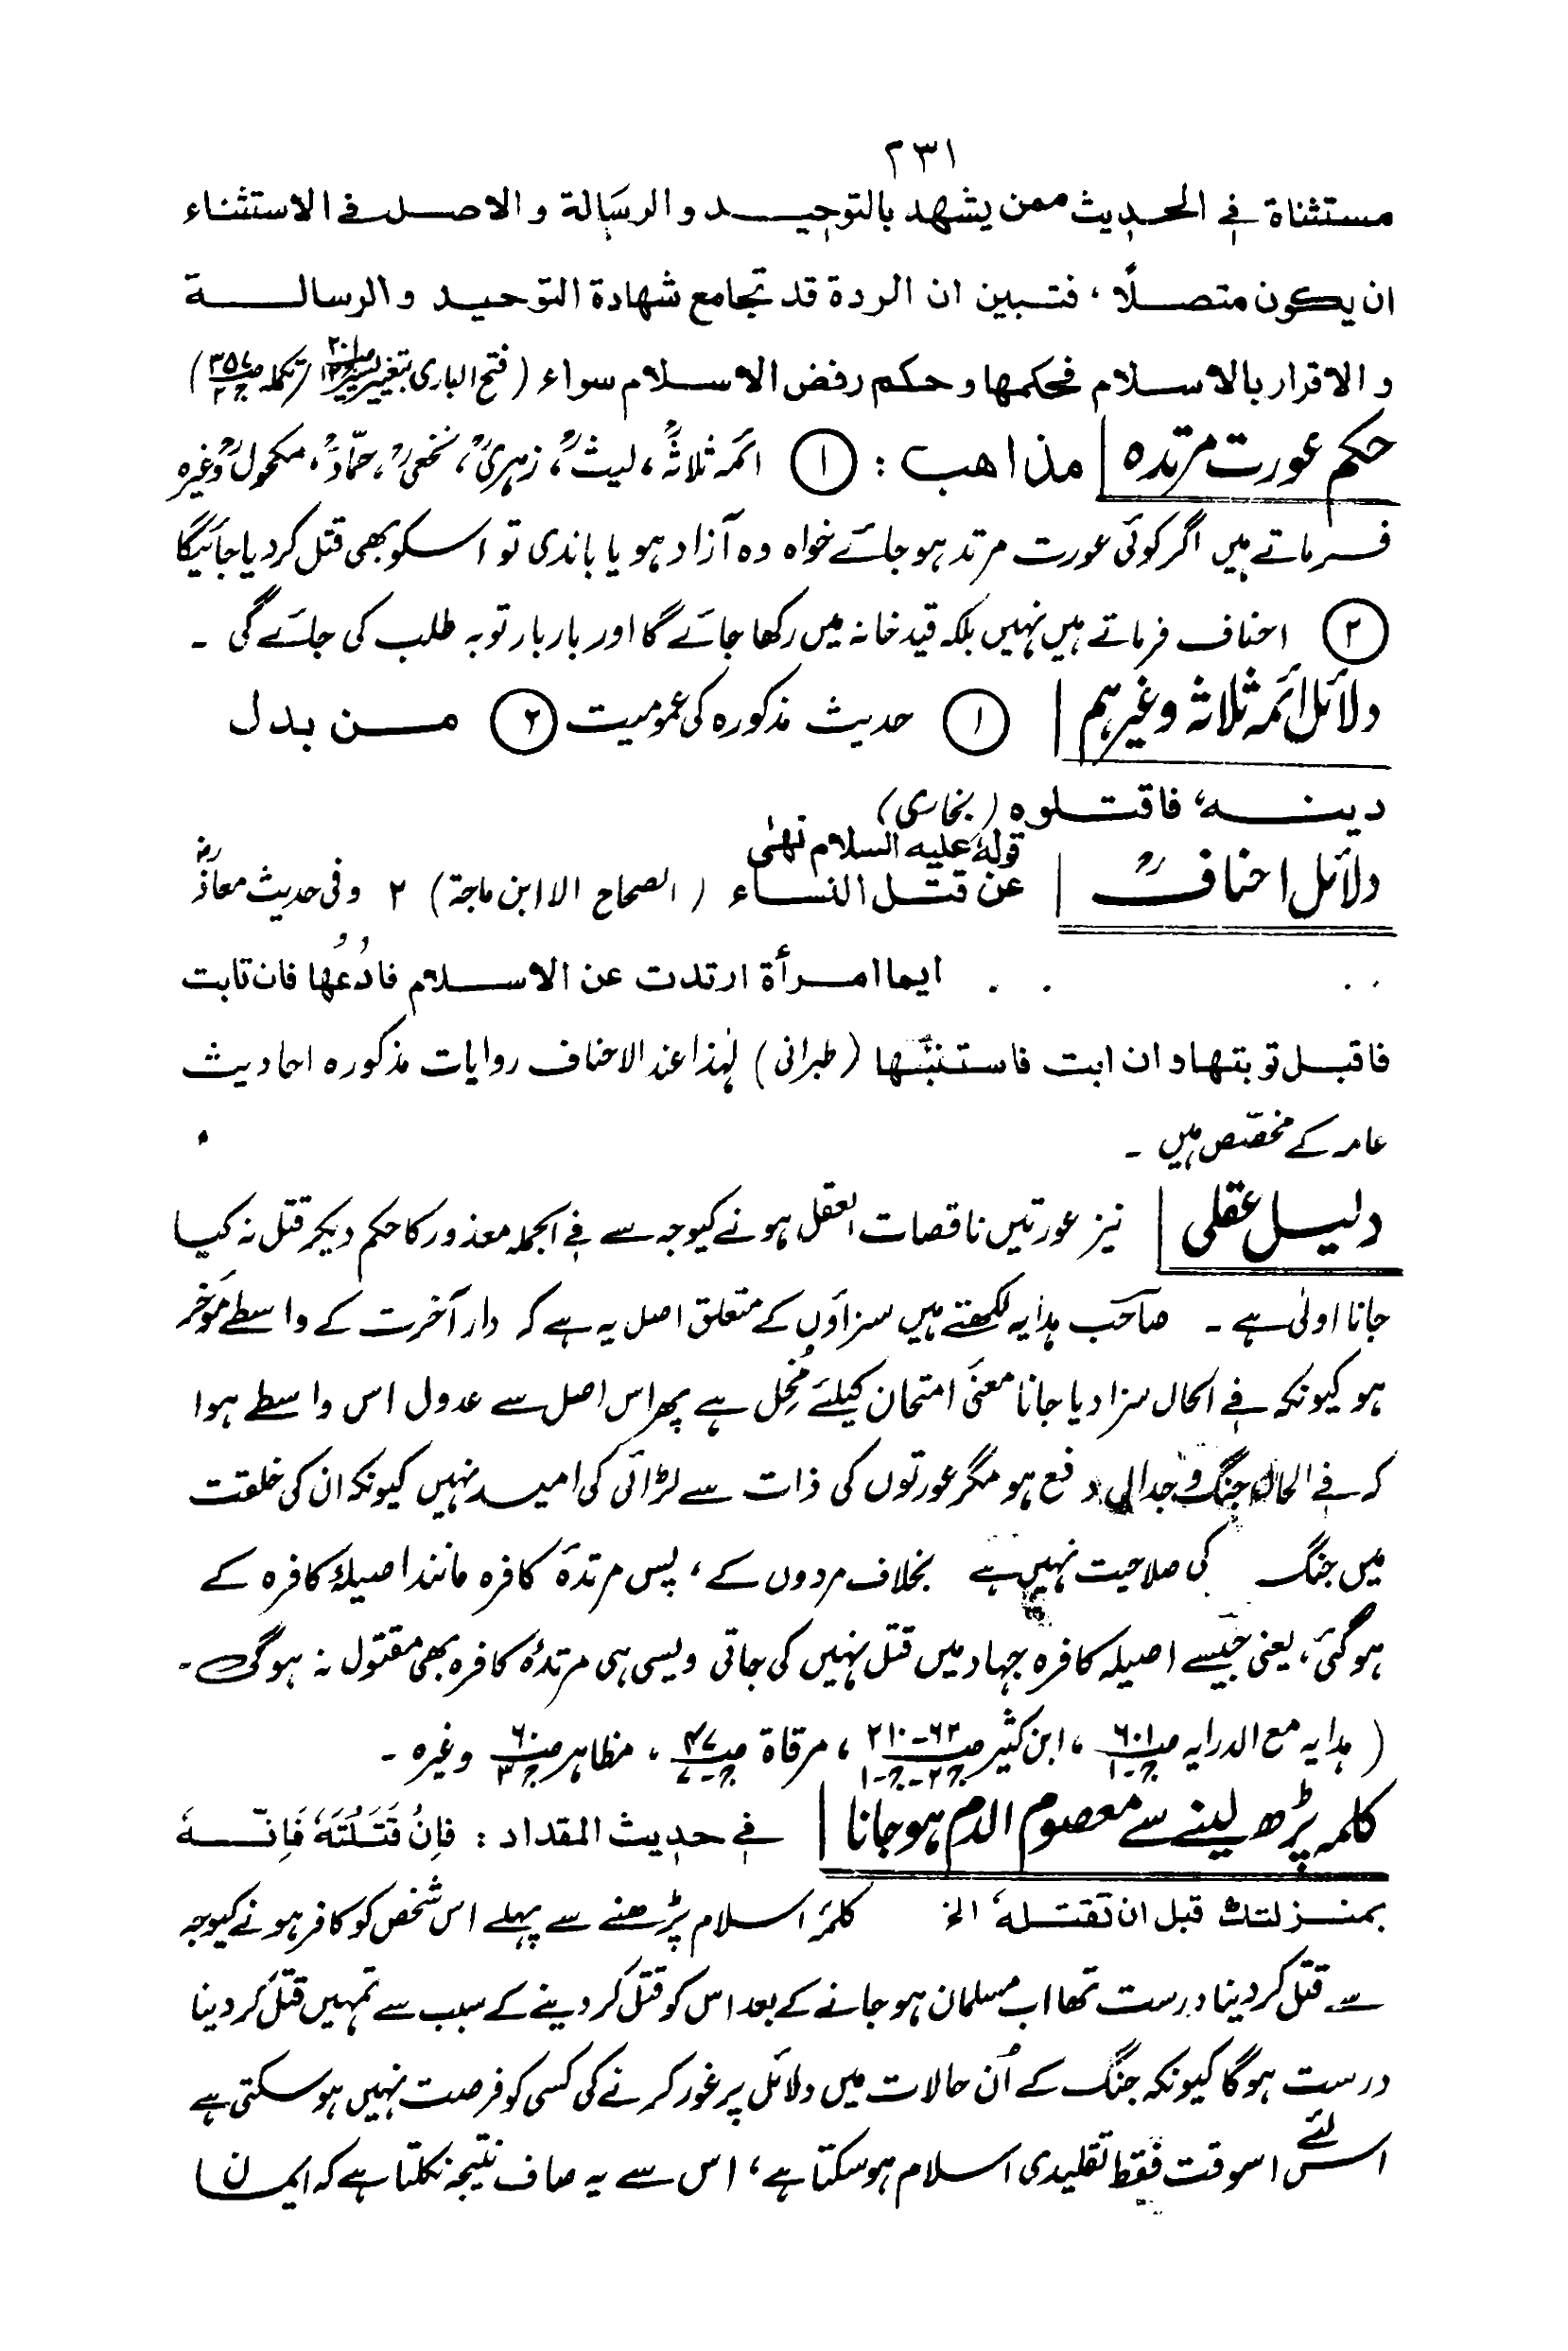 ۲۳۱
مستثناة فی الحدیث ممن یشهد بالتوحید و الرسالة و الاصل فی الاستثناء
ان یکون متصلاً، فتبین ان الردة قد تجامع شهادة التوحید و الرسالة
و الاقرار بالاسلام فحکمها و حکم رفض الاسلام سواء (فتح الباری بتغییر یسیر تکملہ)
حکم عورت مرتدہ | مذاهب: ① ائمہ ثلاثہؒ، لیثؒ، زہریؒ، نخعیؒ، حمّادؒ، مکحولؒ وغیرہ
فرماتے ہیں اگر کوئی عورت مرتد ہو جائے خواہ وہ آزاد ہو یا باندی تو اسکو بھی قتل کر دیا جائیگا
② احناف فرماتے ہیں نہیں بلکہ قید خانہ میں رکھا جائے گا اور بار بار توبہ طلب کی جائے گی ۔
دلائل ائمہ ثلاثہ وغیرہم | ① حدیث مذکورہ کی عمومیت ② من بدل
دینہ، فاقتلوہ (بخاری)
دلائل احنافؒ | قولہٗ علیہ السلام نھٰی
عن قتل النساء (الصحاح الا ابن ماجة) ۲ وفی حدیث معاذؓ
ایما امرأة ارتدت عن الاسلام فادُعھا فان تابت
فاقبل توبتھا و ان ابت فاستتبھا (طبرانی) لہٰذا عند الاحناف روایات مذکورہ احادیث
عامہ کے مخصّص ہیں ۔
دلیل عقلی | نیز عورتیں ناقصات العقل ہونے کیوجہ سے فی الجملہ معذور کا حکم دیکر قتل نہ کیا
جانا اولٰی ہے ۔ صاحب ہدایہ لکھتے ہیں سزاؤں کے متعلق اصل یہ ہے کہ دار آخرت کے واسطے مؤخر
ہو کیونکہ فی الحال سزا دیا جانا معنیٔ امتحان کیلئے مُخِل ہے پھر اس اصل سے عدول اس واسطے ہوا
کہ فی الحال جنگ و جدالی دفع ہو مگر عورتوں کی ذات سے لڑائی کی امید نہیں کیونکہ ان کی خلقت
میں جنگ کی صلاحیت نہیں ہے بخلاف مردوں کے، پس مرتدۂ کافرہ مانند اصیلۂ کافرہ کے
ہو گئی، یعنی جیسے اصیلہ کافرہ جہاد میں قتل نہیں کی جاتی ویسی ہی مرتدۂ کافرہ بھی مقتول نہ ہوگی ۔
(ہدایہ مع الدرایہ ص۶۰۱ ج۱، ابن کثیر ص۶۲-۲۱۰ ج۲-ج۱، مرقاة ص۴۷ ج۷، مظاہر ص۶۰ ج۳ وغیرہ ۔
کلمہ پڑھ لینے سے معصوم الدم ہو جانا | فی حدیث المقداد: فَاِنْ قَتَلْتَہٗ فَاِنَّہٗ
بمنزلتک قبل ان تقتلہٗ الخ کلمۂ اسلام پڑھنے سے پہلے اس شخص کو کافر ہونے کیوجہ
سے قتل کر دینا درست تھا اب مسلمان ہو جانے کے بعد اس کو قتل کر دینے کے سبب سے تمہیں قتل کر دینا
درست ہوگا کیونکہ جنگ کے اُن حالات میں دلائل پر غور کرنے کی کسی کو فرصت نہیں ہو سکتی ہے
اس لئے اسوقت فقط تقلیدی اسلام ہو سکتا ہے، اس سے یہ صاف نتیجہ نکلتا ہے کہ ایمان